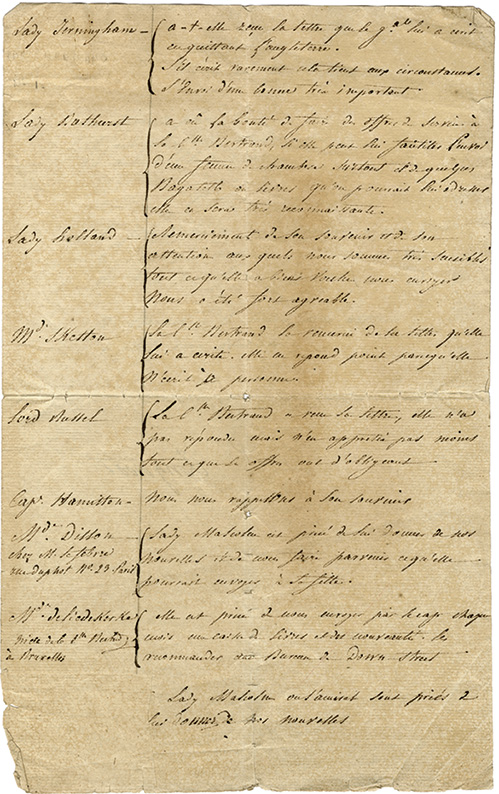 Lady Jerningham – a-t-elle reçu la lettre que le g.al lui a écrit
en quittant l'angleterre.
S'il écrit rarement cela tient aux circonstances.
L'Envoi d'une bonne très important.
Lady Bathurst – a eû la bonté de faire des offres de service à
la C.tesse Bertrand, si elle peut lui faciliter l'envoi
d'une femme de chambre surtout et de quelques
Bagatelles ou livres qu'on pourrait lui adresser
elle en sera très reconnaissante.
Lady Holland – Remerciement de son souvenir et de son
attention aux quels nous sommes très sensibles
tout ce qu'elle a bien voulu nous envoyer
Nous a été fort agréable.
M.d Skelton La C.tesse Bertrand la remercie de la lettre qu'elle
lui a écrite. elle ne répond point parce qu'elle
n'écrit à personne.
Lord Russel La C.tesse Bertrand a reçu sa lettre, elle n'a
pas répondu mais n'en apprécie pas moins
tout ce que ses offres ont d'obligeant
Cap. Hamilton – Nous nous rappellons à son souvenir
M.de Dillon – Lady Malcolm est priée de lui donner de nos
chez M. Lefebvre nouvelles et de nous faire parvenir ce qu'elle
rue duphot N.o 23 Paris pourrait envoyer à S.te hélène.
M.de de Liedekerke elle est priée de nous envoyer par le cap.
nièce de la C.tesse Bertrand mois une caisse de livres et des nouveautés. les
à Bruxelles recommander au Bureau de Down Street
Lady Malcolm ou l'amiral sont priés de
lui donner de nos nouvelles